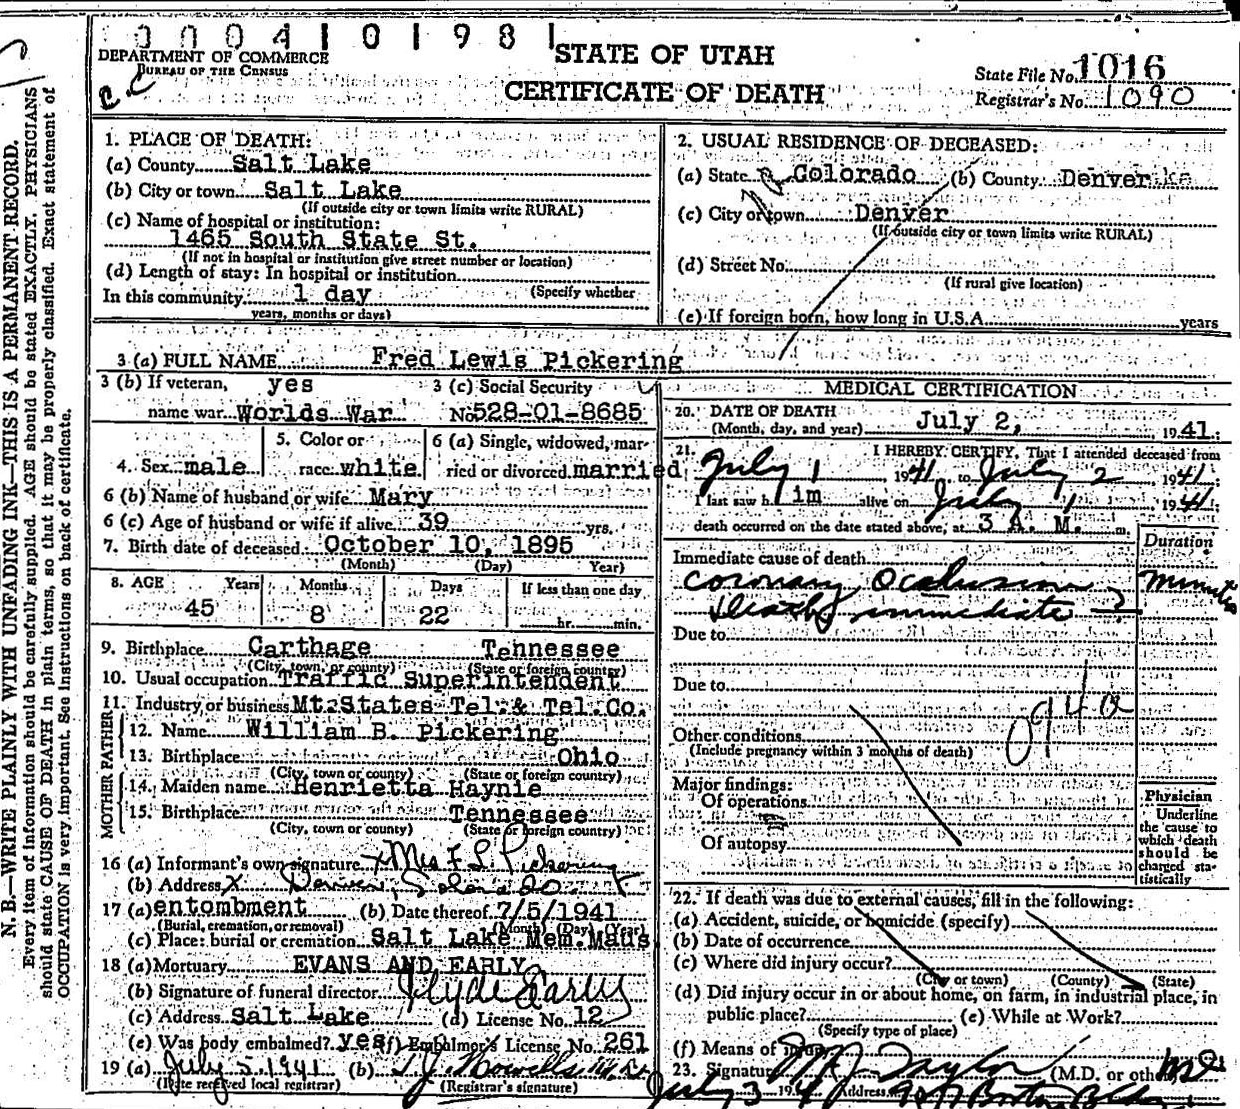 0004101981
DEPARTMENT OF COMMERCE
BUREAU OF THE CENSUS
C.C
STATE OF UTAH
CERTIFICATE OF DEATH
State File No. 1016
Registrar's No. 1090
N. B.—WRITE PLAINLY WITH UNFADING INK—THIS IS A PERMANENT RECORD.
Every item of information should be carefully supplied. AGE should be stated EXACTLY. PHYSICIANS
should state CAUSE OF DEATH in plain terms, so that it may be properly classified. Exact statement of
OCCUPATION is very important. See instructions on back of certificate.
1. PLACE OF DEATH:
(a) County Salt Lake
(b) City or town Salt Lake
(If outside city or town limits write RURAL)
(c) Name of hospital or institution:
1465 South State St.
(If not in hospital or institution give street number or location)
(d) Length of stay: In hospital or institution
(Specify whether
In this community 1 day
years, months or days)
2. USUAL RESIDENCE OF DECEASED:
(a) State Colorado (b) County Denver
(c) City or town Denver
(If outside city or town limits write RURAL)
(d) Street No.
(If rural give location)
(e) If foreign born, how long in U.S.A. years
3 (a) FULL NAME Fred Lewis Pickering
3 (b) If veteran, yes
name war Worlds War
3 (c) Social Security
No. 528-01-8685
4. Sex male
5. Color or
race white
6 (a) Single, widowed, mar-
ried or divorced married
6 (b) Name of husband or wife Mary
6 (c) Age of husband or wife if alive 39 yrs.
7. Birth date of deceased: October 10, 1895
(Month) (Day) Year)
8. AGE Years Months Days If less than one day
45 8 22 hr. min.
9. Birthplace Carthage Tennessee
(City, town, or county) (State or foreign country)
10. Usual occupation Traffic Superintendent
11. Industry or business Mt. States Tel. & Tel. Co.
FATHER
12. Name William B. Pickering
13. Birthplace Ohio
(City, town or county) (State or foreign country)
MOTHER
14. Maiden name Henrietta Haynie
15. Birthplace Tennessee
(City, town or county) (State or foreign country)
16 (a) Informant's own signature x Mrs F L Pickering
(b) Address x Denver, Colorado
17 (a) entombment (b) Date thereof 7/5/1941
(Burial, cremation, or removal) (Month) (Day) (Year)
(c) Place: burial or cremation Salt Lake Mem. Maus
18 (a) Mortuary EVANS AND EARLY
(b) Signature of funeral director Clyde Early
(c) Address Salt Lake (d) License No. 12
(e) Was body embalmed? yes (f) Embalmer's License No. 261
19 (a) July 5, 1941 (b)
(Date received local registrar) (Registrar's signature)
MEDICAL CERTIFICATION
20. DATE OF DEATH
(Month, day, and year) July 2, 1941
21. I HEREBY CERTIFY, That I attended deceased from
July 1, 1941, to July 2, 1941;
I last saw h im alive on July 1, 1941;
death occurred on the date stated above, at 3 A. M. m.
Duration
Immediate cause of death
Coronary Occlusion minutes
Death immediate
Due to
Due to
094a
Other conditions
(Include pregnancy within 3 months of death)
Major findings:
Of operations
Of autopsy
Physician
Underline
the cause to
which death
should be
charged sta-
tistically
22. If death was due to external causes, fill in the following:
(a) Accident, suicide, or homicide (specify)
(b) Date of occurrence
(c) Where did injury occur?
(City or town) (County) (State)
(d) Did injury occur in or about home, on farm, in industrial place, in
public place? (e) While at Work?
(Specify type of place)
(f) Means of injury
23. Signature Taylor (M.D. or other) MD
July 3 194 Address Boston Bldg